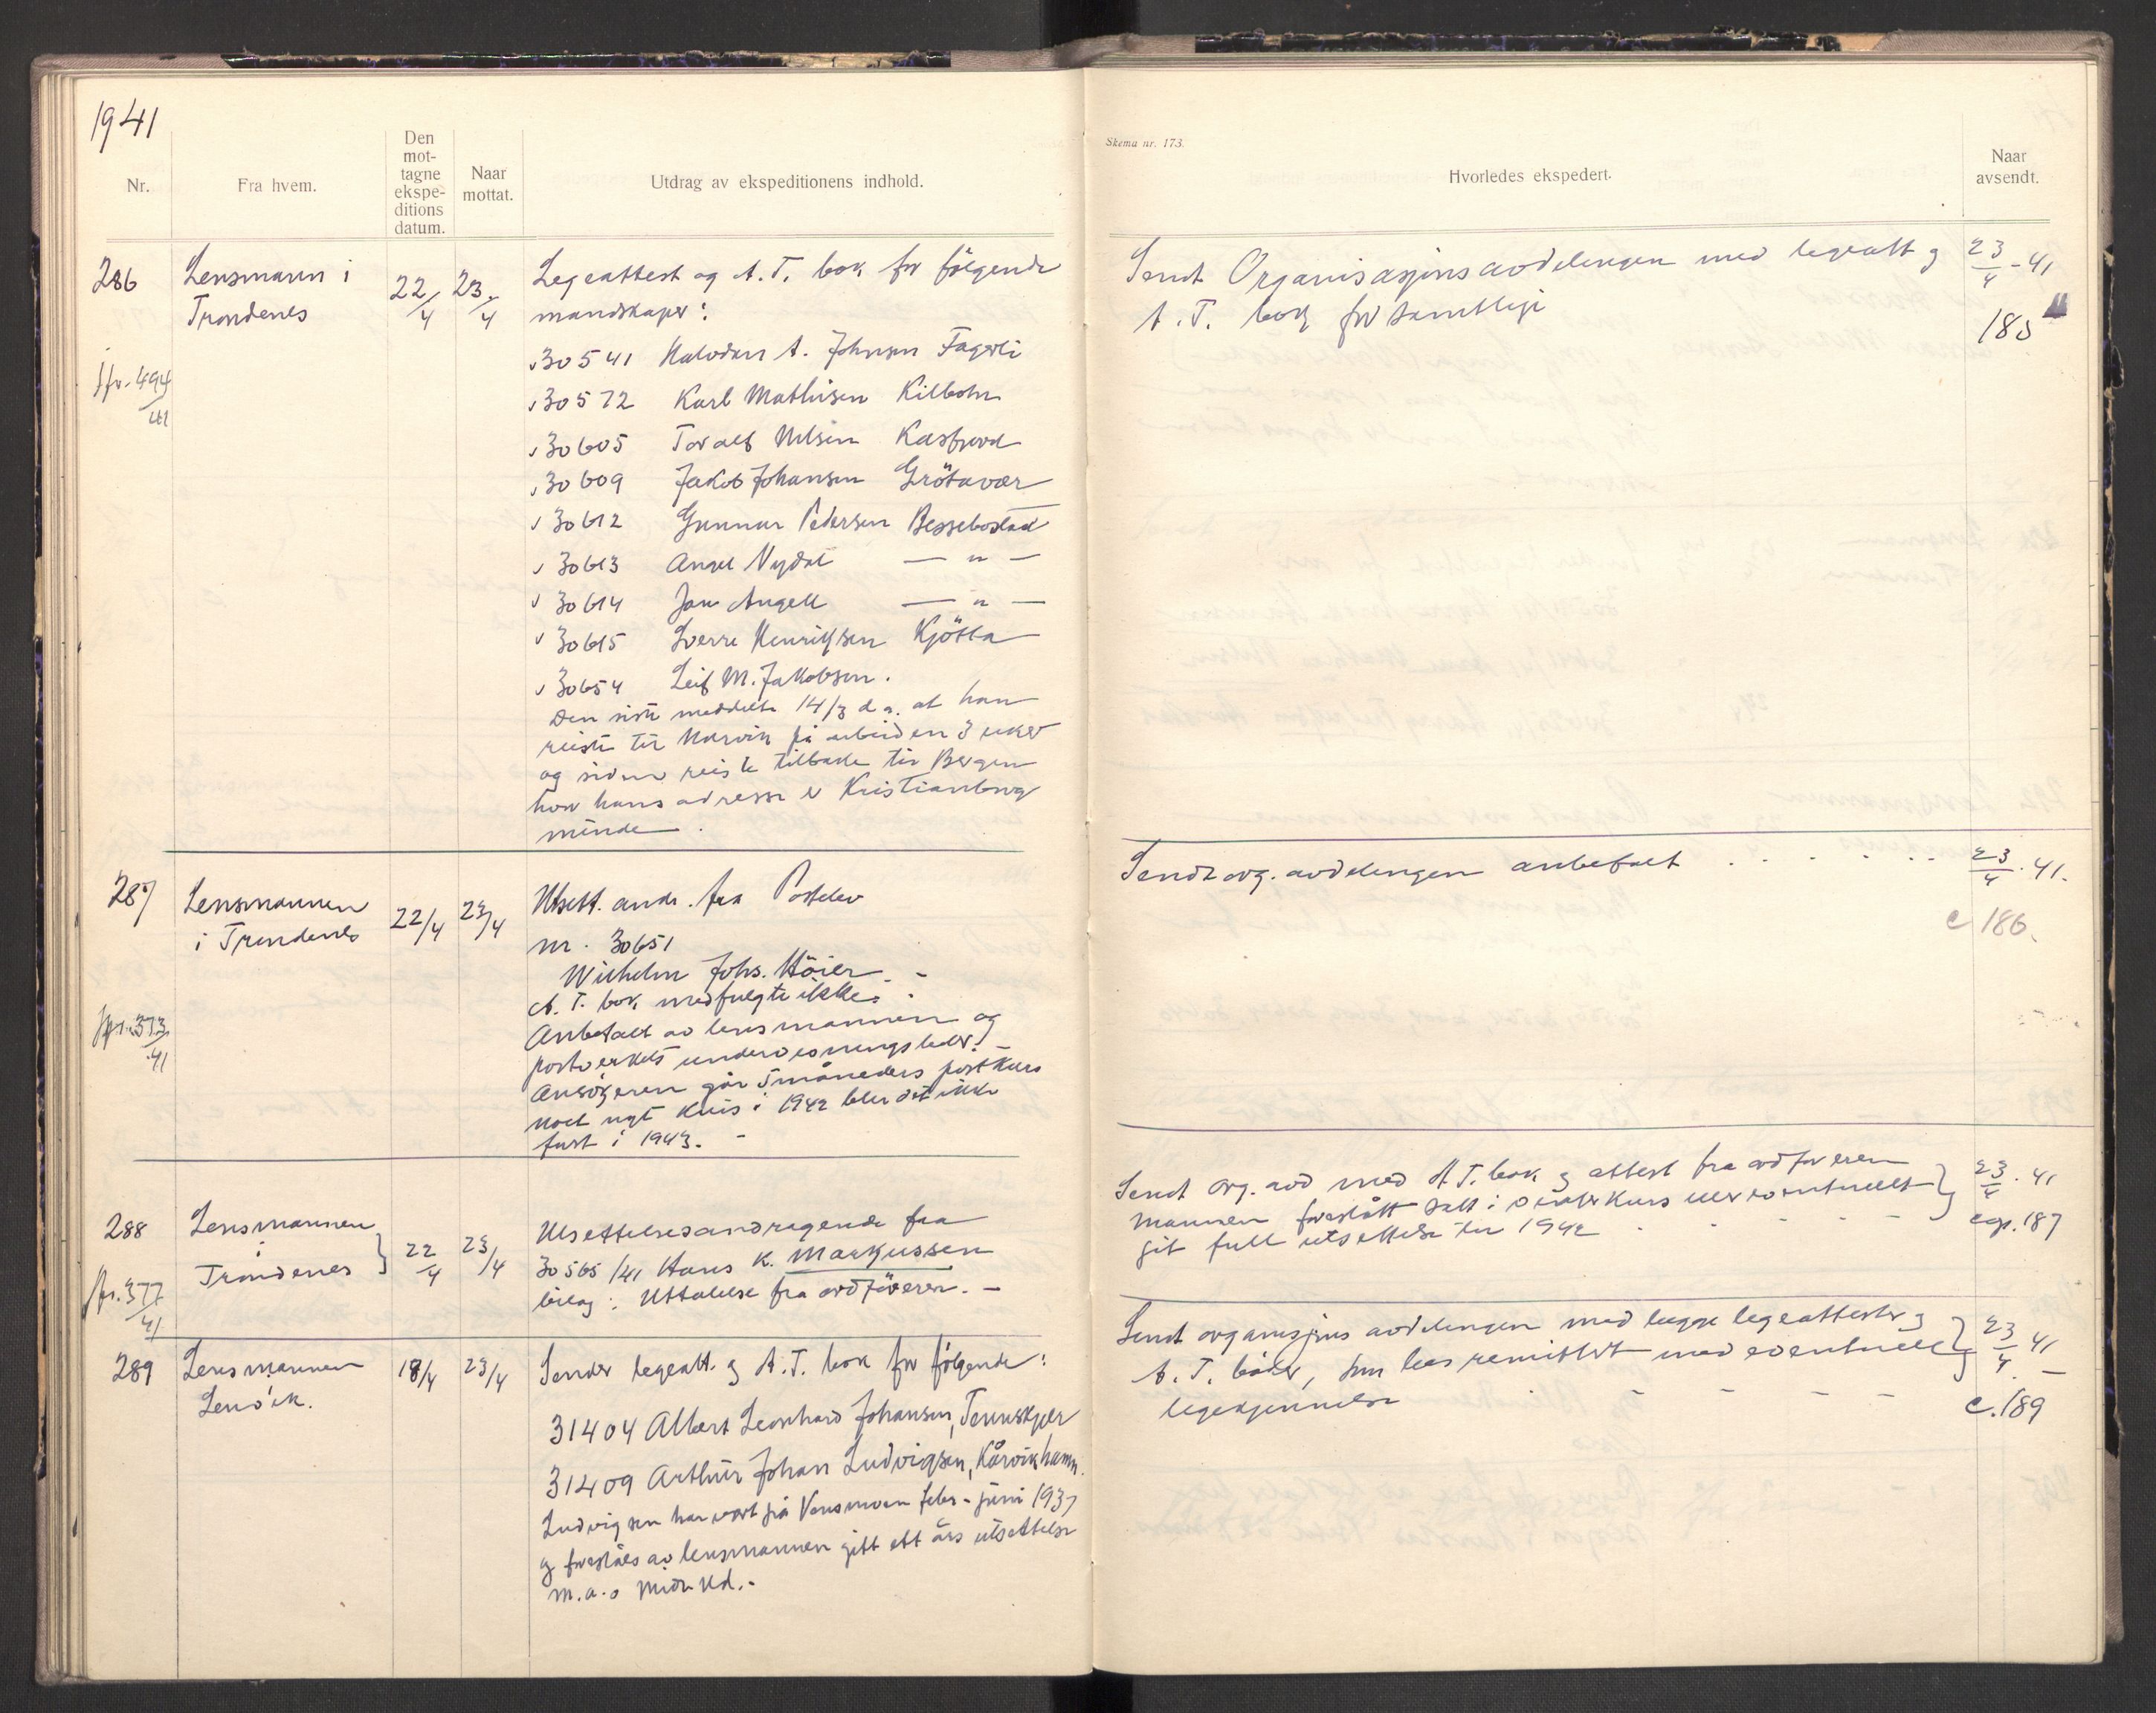 1941
Nr.
Fra hvem.
Den
mot-
tagne
ekspe-
ditions
datum.
Naar
mottat.
Utdrag av ekspeditionens indhold.
286
Lensmann i
Trondenes
22/4
23/4
jfr. 494/41
Legeattest og A.T. bok for følgende
mandskaper:
30541 Halvdan A. Johnsen Fagerli
30572 Karl Mathisen Kilbotn
30605 Toralf Nilsen Kasfjord
30609 Jakob Johansen Grötavær
30612 Gunnar Pedersen Bessebostad
30613 Aksel Nydal — " —
30614 Jan Angell — " —
30615 Sverre Henriksen Kjötta
30654 Leif M. Jakobsen.
Den siste meddelte 14/3 d.a. at han
reiste til Narvik på arbeid en 3 uker
og siden reiste tilbake til Bergen
hvor hans adresse er Kristianborg
minde.
287
Lensmannen
i Trondenes
22/4
23/4
jfr. 373/41
Utsett. andr. fra Postelev
nr. 30651
Wilhelm Johs. Höier. -
A.T. bok medfulgte ikke.
Anbefalt av lensmannen og
postverkets undervisningsleder. -
Ansökeren går 5 måneders postkurs
nytt kurs i 1942 blir det ikke
först i 1943. -
288
Lensmannen
i
Trondenes
22/4
23/4
jfr. 377/41
Utsettelsesandragende fra
30565/41 Hans K. Markussen
bilag: Uttalelse fra ordföreren. -
289
Lensmannen
Lenvik.
18/4
23/4
Sender legeatt. og A.T. bok for følgende:
31404 Albert Leonhard Johansen, Tennskjer
31409 Arthur Johan Ludvigsen, Kårvikhamn.
Ludvigsen har vært på Vensmoen febr - juni 1937
og foreslåes av lensmannen gitt ett års utsettelse
Skema nr. 173.
Hvorledes ekspedert.
Naar
avsendt.
Sendt Organisasjonsavdelingen med legeatt og
A.T. bok for samtlige
23/4-41
185
Sendt org. avdelingen anbefalt . . . . . .
23/4.41.
c 186.
Sendt org. avd med A.T. bok og attest fra ordföreren
Mannen foreslått satt i vinterkurs eller eventuellt
git full utsettelse til 1942
23/4.41
187
Sendt organisjons avdelingen med begge legeattester og
A.T. böker, som bes remittert med eventuell
legekjennelse
23/4 41
c. 189